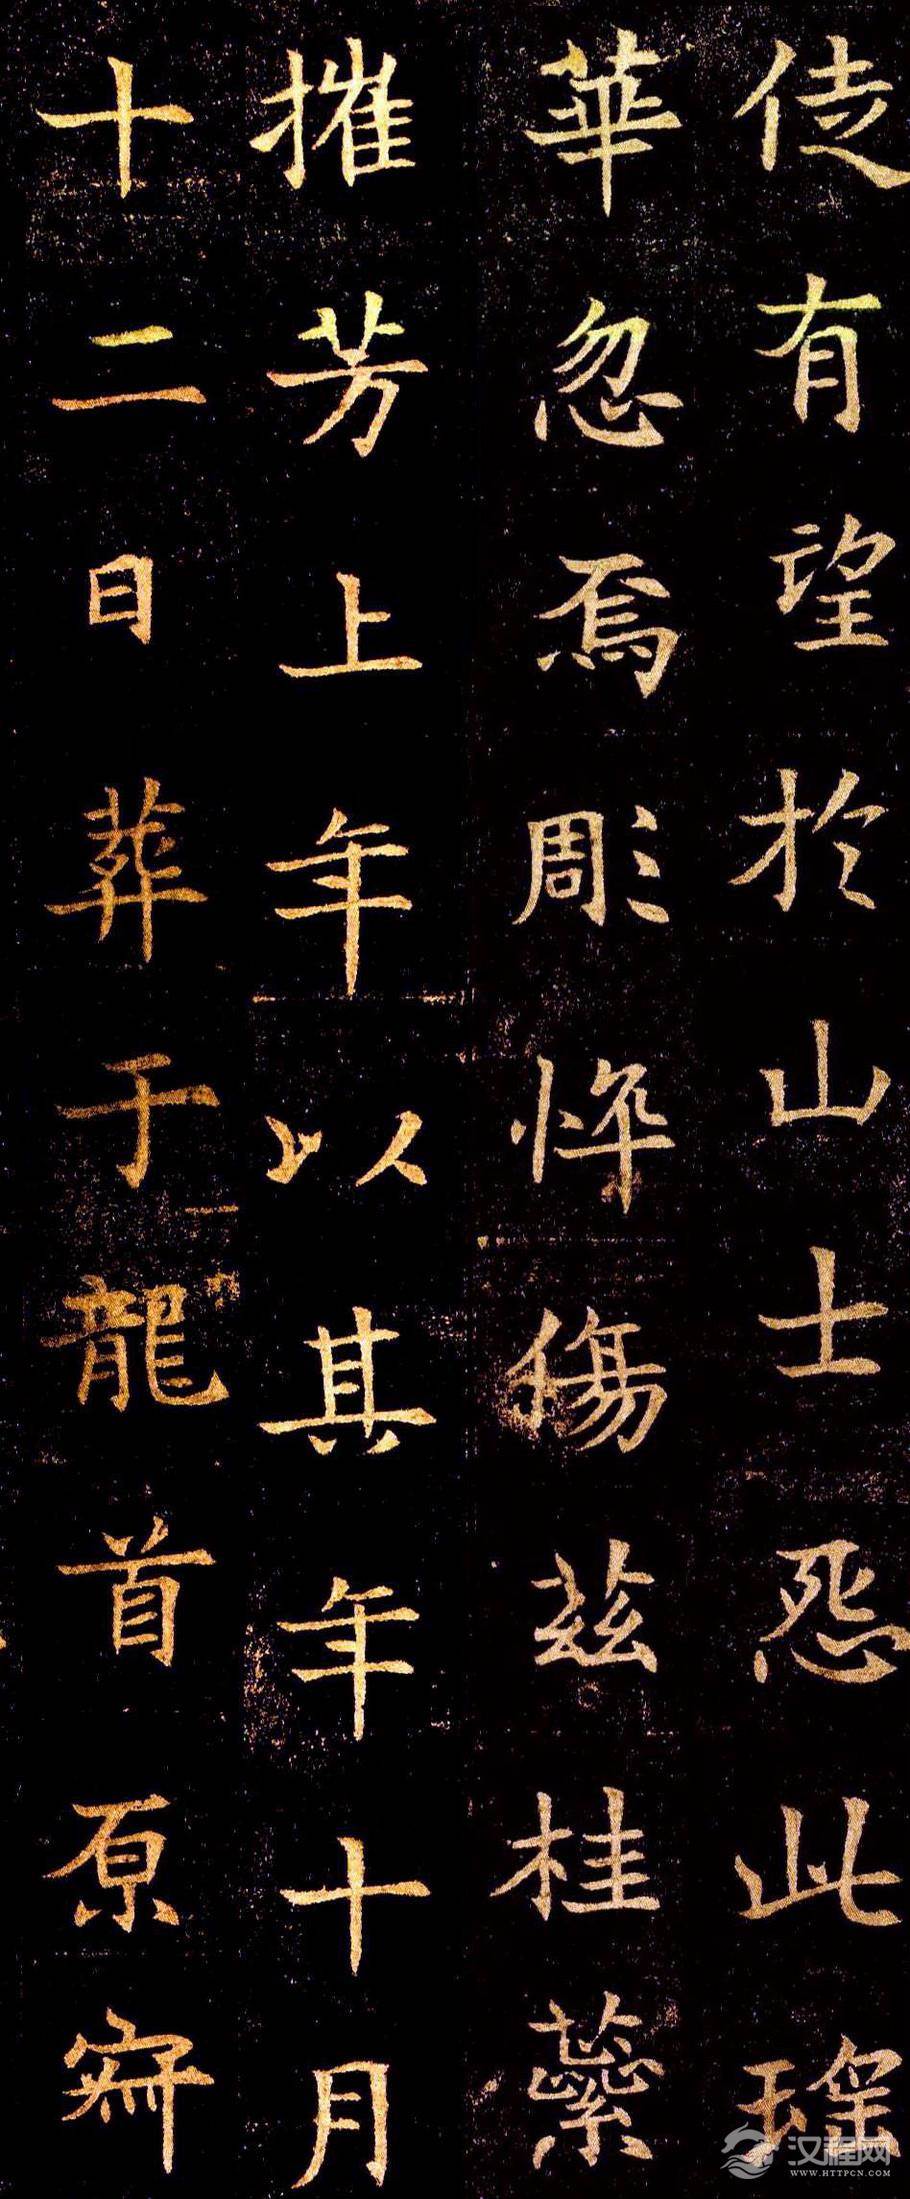 徒有望於山士怨此瑤
華忽焉彫悴傷茲桂蘂
摧芳上年以其年十月
十二日葬于龍首原寂
汉程网
WWW.HTTPCN.COM